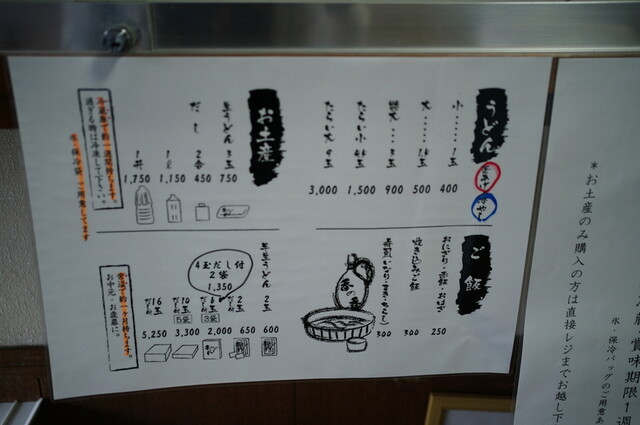 うどん
小‥‥1玉 400
大‥‥1½玉 500
特大‥‥2玉 900
たらい小 4玉 1,500
たらい大 9玉 3,000
ご飯
おにぎり・赤飯・おはぎ 250
炊き込みご飯 300
寿司(いなり・まき・ちらし) 300
お土産
生うどん 2玉 750
だし 2合 450
1ℓ 1,150
1升 1,750
冷蔵庫で約一週間持ちます。
過ぎる時は冷凍して下さい。
氷・保冷袋ご用意してます
半生うどん 2玉 600
2玉 だし付 650
6玉 だし付 2,000
10玉 だし付 3,300
16玉 だし付 5,250
4玉だし付
2袋
1,350
常温で約一ヶ月持ちます。
お中元・お歳暮に。
*お土産のみ購入の方は直接レジまでお越し下
氷・保冷バッグのご用意あ
賞味期限1週